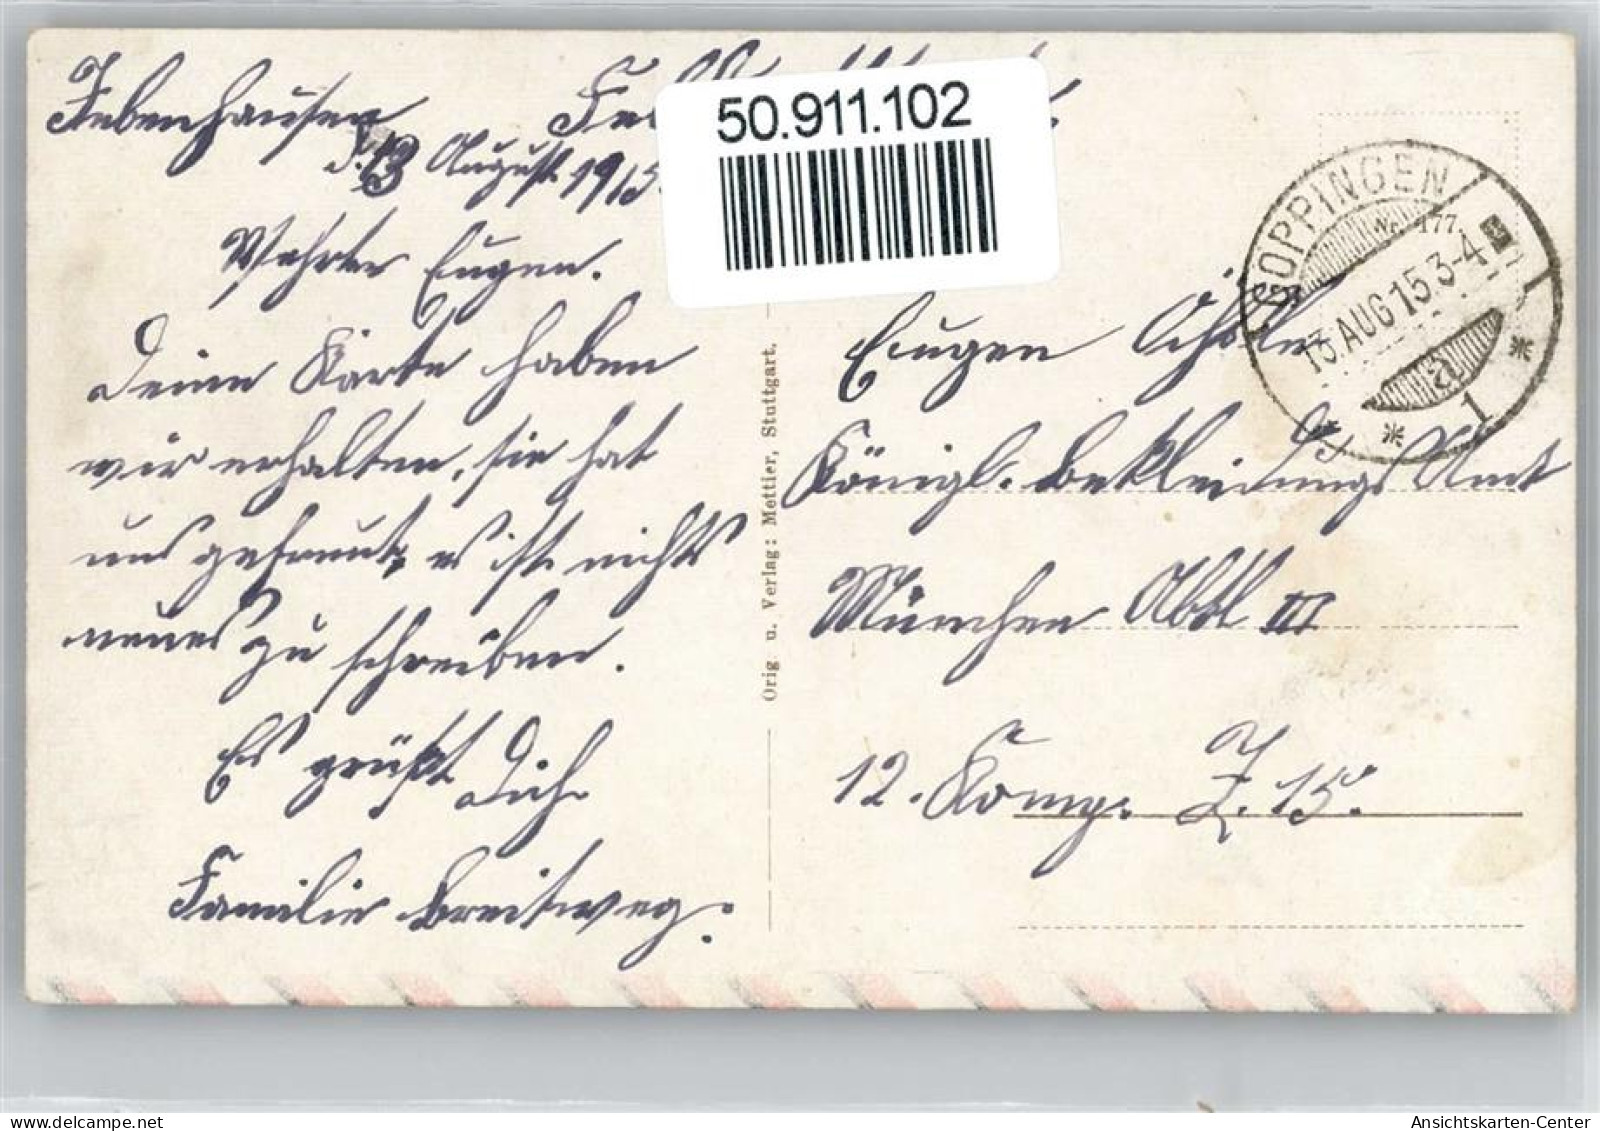 Jebenhausen
d. 13 August 1915.
Wehrter Eugen.
Deine Karte haben
wir erhalten, sie hat
uns gefreut, es ist nichts
neues zu schreiben.
Es grüßt Dich
Familie Breitweg.
50.911.102
Orig. u. Verlag: Mettier, Stuttgart.
Nr. 177.
GÖPPINGEN
13.AUG 15.3-4
a
* 1 *
Eugen
Königl. Bekleidungs Amt
München Abtl III
12. Komp. Z. 15.
Ansichtskarten-Center